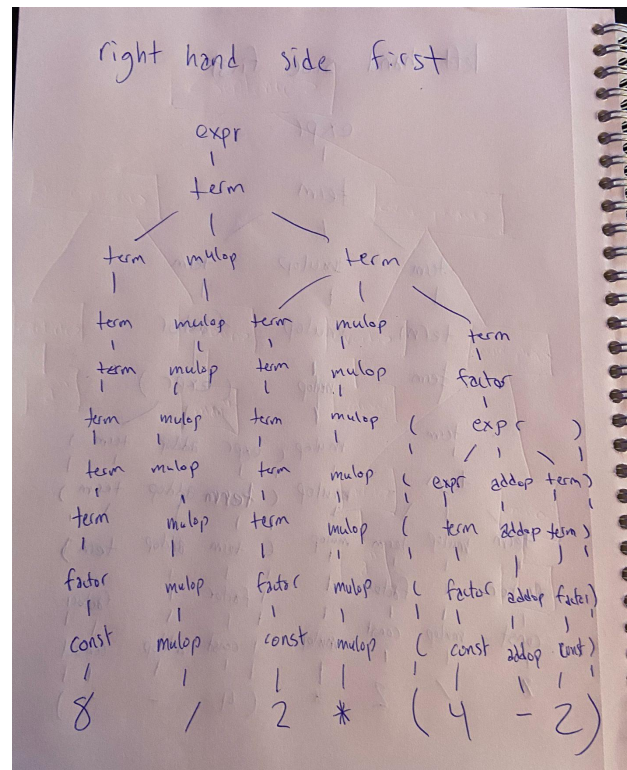 right hand side first
expr
term
term mulop term
term mulop term mulop term
term mulop term mulop factor
term mulop term mulop ( expr )
term mulop term mulop ( expr addop term )
term mulop term mulop ( term addop term )
factor mulop factor mulop ( factor addop factor )
const mulop const mulop ( const addop const )
8 / 2 * ( 4 - 2 )